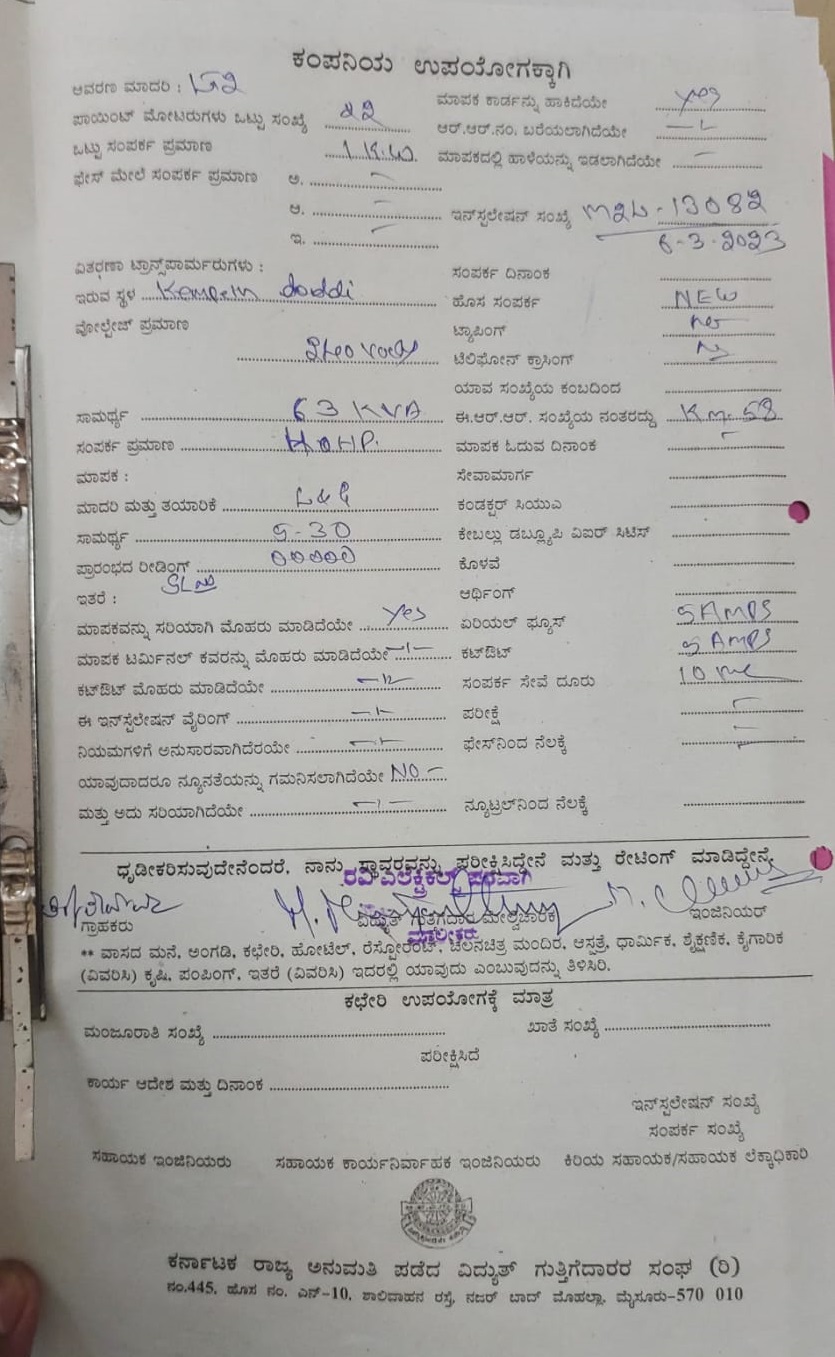 ಕಂಪನಿಯ ಉಪಯೋಗಕ್ಕಾಗಿ
ಆವರಣ ಮಾದರಿ :
ಮಾಪಕ ಕಾರ್ಡನ್ನು ಹಾಕಿದೆಯೇ yes
ಪಾಯಿಂಟ್ ಮೋಟರುಗಳು ಒಟ್ಟು ಸಂಖ್ಯೆ
ಆರ್.ಆರ್.ನಂ. ಬರೆಯಲಾಗಿದೆಯೇ
ಒಟ್ಟು ಸಂಪರ್ಕ ಪ್ರಮಾಣ 1 K.W.
ಮಾಪಕದಲ್ಲಿ ಹಾಳೆಯನ್ನು ಇಡಲಾಗಿದೆಯೇ
ಫೇಸ್ ಮೇಲೆ ಸಂಪರ್ಕ ಪ್ರಮಾಣ ಅ.
ಆ.
ಇನ್‌ಸ್ಪಲೇಷನ್ ಸಂಖ್ಯೆ M2L-13082
ಇ.
6-3-2023
ವಿತರಣಾ ಟ್ರಾನ್ಸ್‌ಪಾರ್ಮರುಗಳು :
ಸಂಪರ್ಕ ದಿನಾಂಕ
ಇರುವ ಸ್ಥಳ doddi
ಹೊಸ ಸಂಪರ್ಕ NEW
ವೋಲ್ಟೇಜ್ ಪ್ರಮಾಣ
ಟ್ಯಾಪಿಂಗ್
ಟೆಲಿಫೋನ್ ಕ್ರಾಸಿಂಗ್
ಯಾವ ಸಂಖ್ಯೆಯ ಕಂಬದಿಂದ
ಸಾಮರ್ಥ್ಯ 63 KVA
ಈ.ಆರ್.ಆರ್. ಸಂಖ್ಯೆಯ ನಂತರದ್ದು
ಸಂಪರ್ಕ ಪ್ರಮಾಣ
ಮಾಪಕ ಓದುವ ದಿನಾಂಕ
ಮಾಪಕ :
ಸೇವಾಮಾರ್ಗ
ಮಾದರಿ ಮತ್ತು ತಯಾರಿಕೆ L&G
ಕಂಡಕ್ಟರ್ ಸಿಯುಎ
ಸಾಮರ್ಥ್ಯ 5-30
ಕೇಬಲ್ಲು ಡಬ್ಲ್ಯೂಪಿ ವಿಐರ್ ಸಿಟಿಸ್
ಪ್ರಾರಂಭದ ರೀಡಿಂಗ್ 00000
ಕೊಳವೆ
ಇತರೆ :
ಆರ್ಥಿಂಗ್
ಮಾಪಕವನ್ನು ಸರಿಯಾಗಿ ಮೊಹರು ಮಾಡಿದೆಯೇ yes
ಏರಿಯಲ್ ಫ್ಯೂಸ್ 5 AMPS
ಮಾಪಕ ಟರ್ಮಿನಲ್ ಕವರನ್ನು ಮೊಹರು ಮಾಡಿದೆಯೇ
ಕಟ್‌ಔಟ್ 5 AMPS
ಕಟ್‌ಔಟ್ ಮೊಹರು ಮಾಡಿದೆಯೇ
ಸಂಪರ್ಕ ಸೇವೆ ದೂರು 10
ಈ ಇನ್‌ಸ್ಟೆಲೆಷನ್ ವೈರಿಂಗ್
ಪರೀಕ್ಷೆ
ನಿಯಮಗಳಿಗೆ ಅನುಸಾರವಾಗಿದೆರಯೇ
ಫೇಸ್‌ನಿಂದ ನೆಲಕ್ಕೆ
ಯಾವುದಾದರೂ ನ್ಯೂನತೆಯನ್ನು ಗಮನಿಸಲಾಗಿದೆಯೇ NO
ಮತ್ತು ಅದು ಸರಿಯಾಗಿದೆಯೇ
ನ್ಯೂಟ್ರಲ್‌ನಿಂದ ನೆಲಕ್ಕೆ
ಧೃಡೀಕರಿಸುವುದೇನೆಂದರೆ, ನಾನು ಸ್ಥಾವರವನ್ನು ಪರೀಕ್ಷಿಸಿದ್ದೇನೆ ಮತ್ತು ರೇಟಿಂಗ್ ಮಾಡಿದ್ದೇನೆ
ರವಿ ಎಲೆಕ್ಟ್ರಿಕಲ್ಸ್ ಪರವಾಗಿ
ಗ್ರಾಹಕರು
ವಿದ್ಯುತ್ ಗುತ್ತಿಗೆದಾರ ಮೇಲ್ವಿಚಾರಕ
ಇಂಜಿನಿಯರ್
ಮಾಲೀಕರು
** ವಾಸದ ಮನೆ, ಅಂಗಡಿ, ಕಛೇರಿ, ಹೋಟೆಲ್, ರೆಸ್ಟೋರೆಂಟ್, ಚಲನಚಿತ್ರ ಮಂದಿರ, ಆಸ್ಪತ್ರೆ, ಧಾರ್ಮಿಕ, ಶೈಕ್ಷಣಿಕ, ಕೈಗಾರಿಕ
(ವಿವರಿಸಿ) ಕೃಷಿ, ಪಂಪಿಂಗ್, ಇತರೆ (ವಿವರಿಸಿ) ಇದರಲ್ಲಿ ಯಾವುದು ಎಂಬುವುದನ್ನು ತಿಳಿಸಿರಿ.
ಕಛೇರಿ ಉಪಯೋಗಕ್ಕೆ ಮಾತ್ರ
ಮಂಜೂರಾತಿ ಸಂಖ್ಯೆ
ಖಾತೆ ಸಂಖ್ಯೆ
ಪರೀಕ್ಷಿಸಿದೆ
ಕಾರ್ಯ ಆದೇಶ ಮತ್ತು ದಿನಾಂಕ
ಇನ್‌ಸ್ಪಲೇಷನ್ ಸಂಖ್ಯೆ
ಸಂಪರ್ಕ ಸಂಖ್ಯೆ
ಸಹಾಯಕ ಇಂಜಿನಿಯರು ಸಹಾಯಕ ಕಾರ್ಯನಿರ್ವಾಹಕ ಇಂಜಿನಿಯರು ಕಿರಿಯ ಸಹಾಯಕ/ಸಹಾಯಕ ಲೆಕ್ಕಾಧಿಕಾರಿ
ಕರ್ನಾಟಕ ರಾಜ್ಯ ಅನುಮತಿ ಪಡೆದ ವಿದ್ಯುತ್ ಗುತ್ತಿಗೆದಾರರ ಸಂಘ (ರಿ)
ನಂ.445, ಹೊಸ ನಂ. ಎನ್-10, ಶಾಲಿವಾಹನ ರಸ್ತೆ, ನಜರ್ ಬಾದ್ ಮೊಹಲ್ಲಾ, ಮೈಸೂರು-570 010